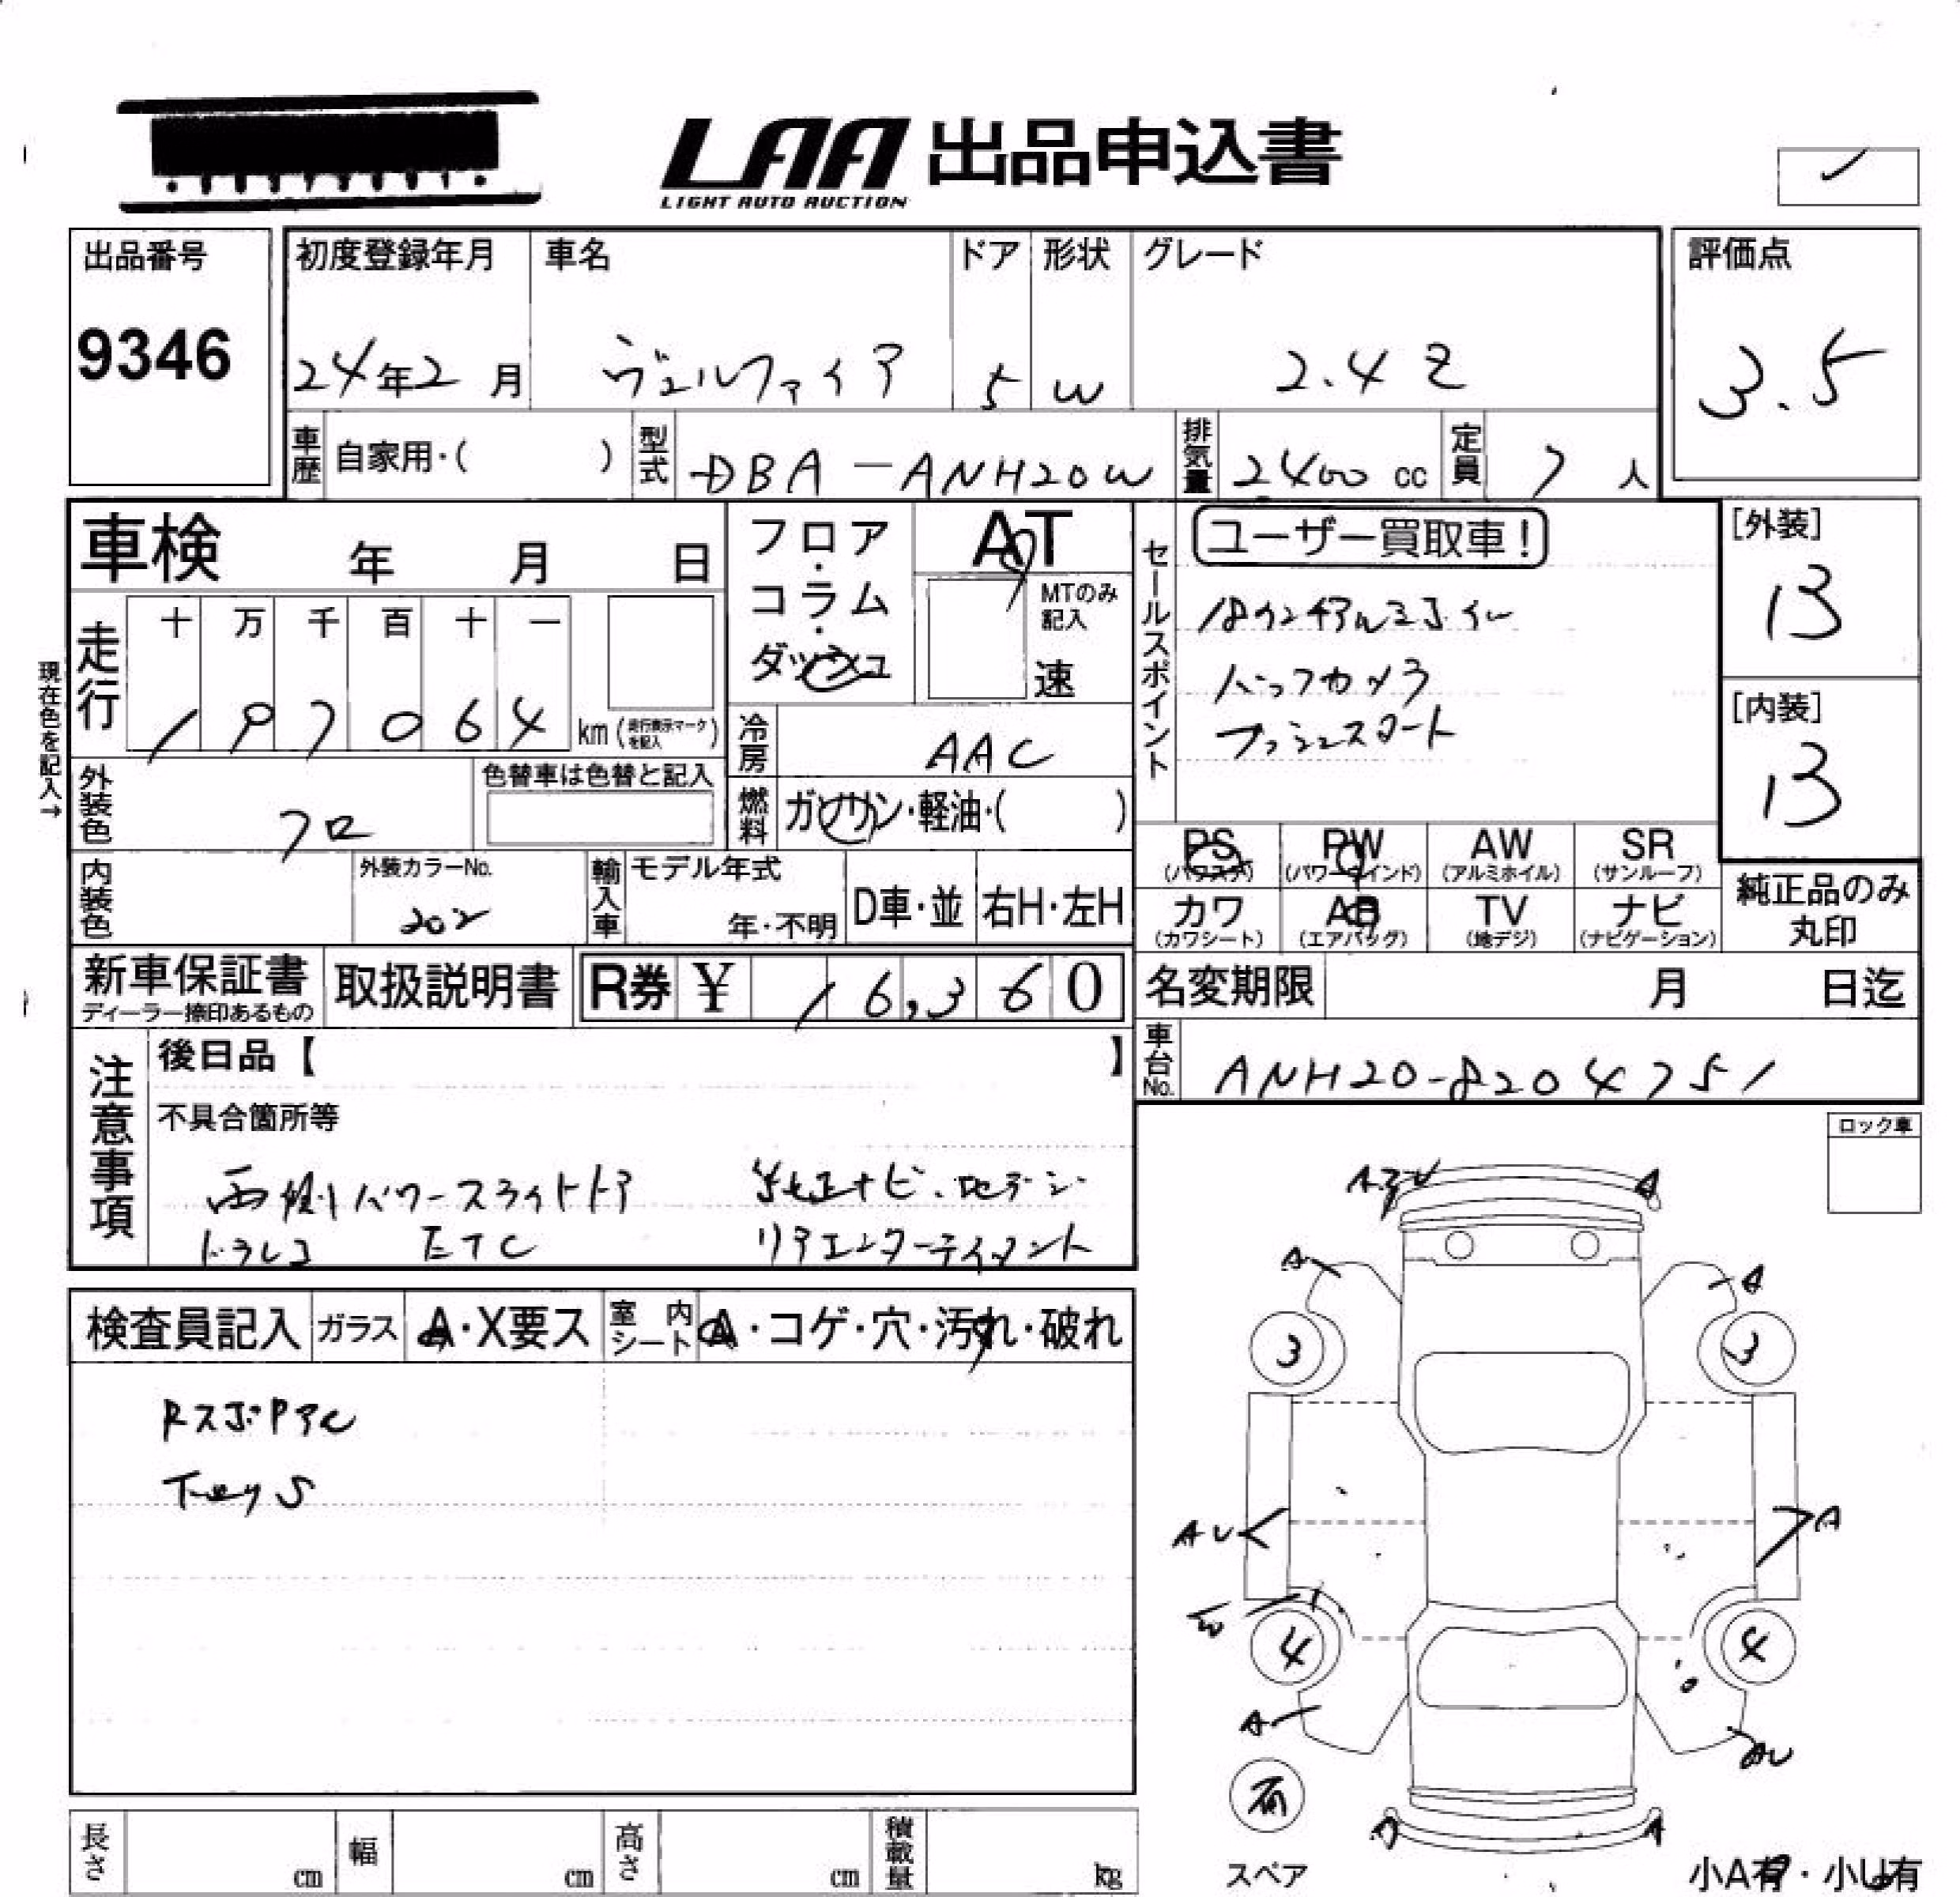 LAA 出品申込書
LIGHT AUTO AUCTION
出品番号
9346
初度登録年月
24年2月
車名
ヴェルファイア
ドア
5
形状
W
グレード
2.4 Z
評価点
3.5
車歴
自家用・( )
型式
DBA-ANH20W
排気量
2400 cc
定員
7 人
車検 年 月 日
フロア・コラム・ダッシュ
AT
MTのみ記入
速
セールスポイント
ユーザー買取車!
18インチアルミホイル
バックカメラ
プッシュスタート
[外装]
B
[内装]
B
現在色を記入→
走行
十 万 千 百 十 一
1 9 7 0 6 4
km (走行表示マークを記入)
冷房
AAC
外装色
クロ
色替車は色替と記入
燃料
ガソリン・軽油・( )
PS
(パワステ)
PW
(パワーウインド)
AW
(アルミホイル)
SR
(サンルーフ)
カワ
(カワシート)
AB
(エアバッグ)
TV
(地デジ)
ナビ
(ナビゲーション)
純正品のみ
丸印
内装色
外装カラーNo.
202
輸入車
モデル年式
年・不明
D車・並
右H・左H
新車保証書
ディーラー捺印あるもの
取扱説明書
R券 ¥ 16,360
名変期限 月 日迄
車台No.
ANH20-8204751
注意事項
後日品【 】
不具合箇所等
両側パワースライドドア 純正ナビ・地デジ
ドラレコ ETC リアエンターテイメント
ロック車
検査員記入
ガラス
A・X要ス
室内シート
A・コゲ・穴・汚れ・破れ
A
A
A
A
3
3
AU
A
4
4
A
AU
有
スペア
A
小A有・小U有
長さ cm
幅 cm
高さ cm
積載量 kg